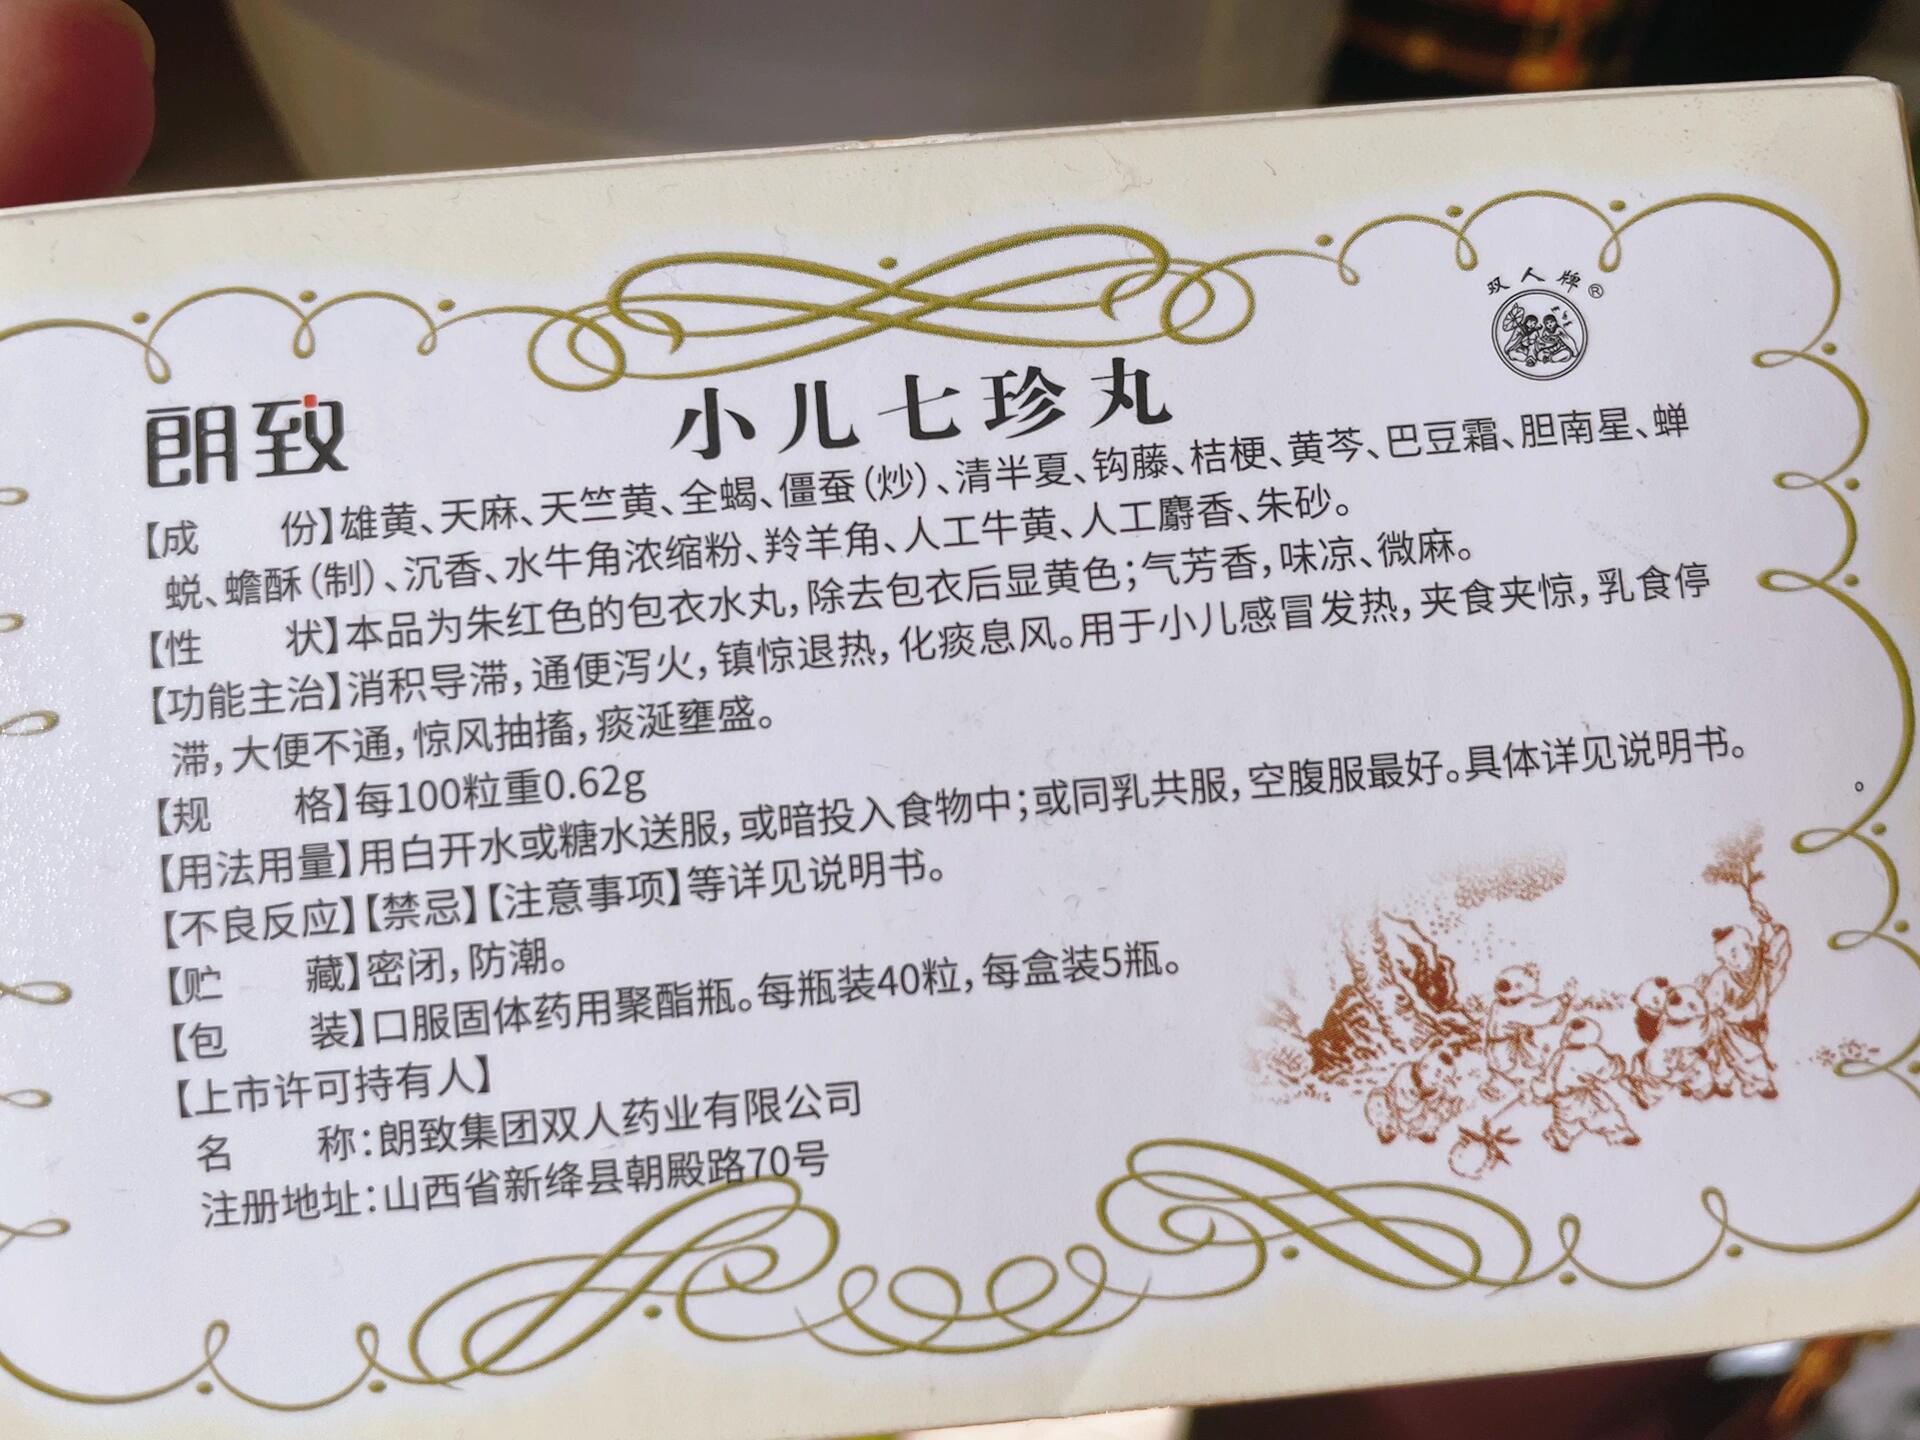 双人牌®
朗致
小儿七珍丸
【成 份】雄黄、天麻、天竺黄、全蝎、僵蚕(炒)、清半夏、钩藤、桔梗、黄芩、巴豆霜、胆南星、蝉
蜕、蟾酥(制)、沉香、水牛角浓缩粉、羚羊角、人工牛黄、人工麝香、朱砂。
【性 状】本品为朱红色的包衣水丸,除去包衣后显黄色;气芳香,味凉、微麻。
【功能主治】消积导滞,通便泻火,镇惊退热,化痰息风。用于小儿感冒发热,夹食夹惊,乳食停
滞,大便不通,惊风抽搐,痰涎壅盛。
【规 格】每100粒重0.62g
【用法用量】用白开水或糖水送服,或暗投入食物中;或同乳共服,空腹服最好。具体详见说明书。
【不良反应】【禁忌】【注意事项】等详见说明书。
【贮 藏】密闭,防潮。
【包 装】口服固体药用聚酯瓶。每瓶装40粒,每盒装5瓶。
【上市许可持有人】
名 称:朗致集团双人药业有限公司
注册地址:山西省新绛县朝殿路70号